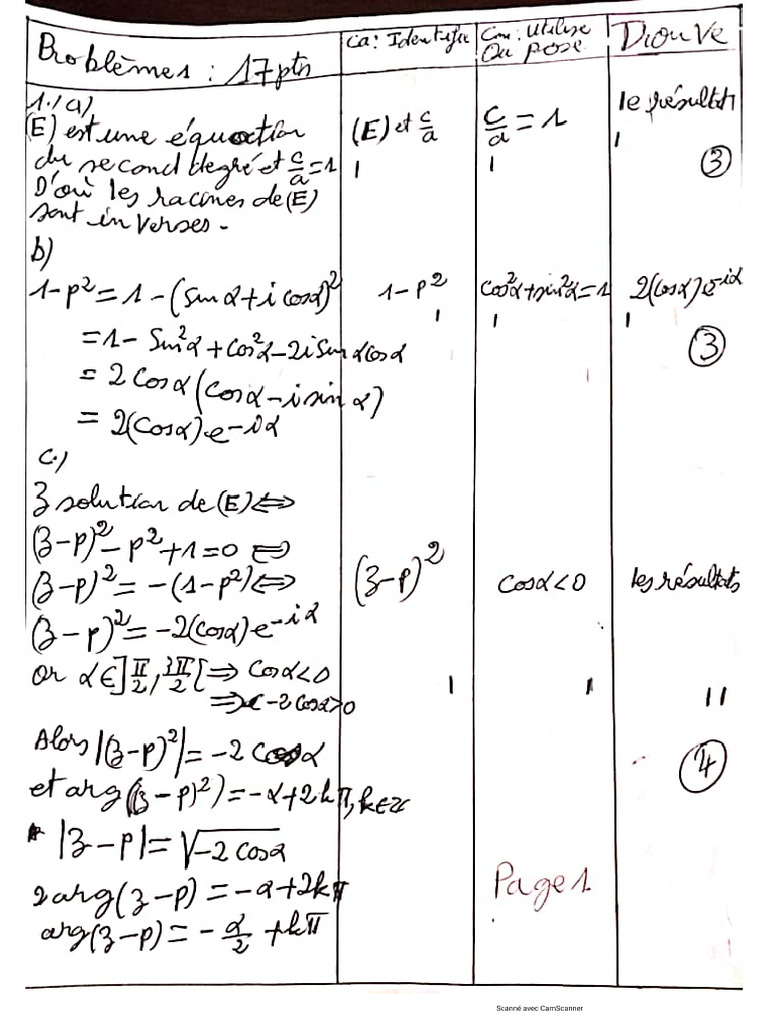 Problèmes : 17pts
Ca : Identifie
Con : utilise
Ou pose
Trouve
1.1 a)
(E) est une équation
du second degré et c/a = 1
D'où les racines de (E)
sont inverses.
(E) et c/a
1
c/a = 1
1
le résultat
1
③
b)
1-p² = 1-(sin α + i cos α)²
= 1 - sin²α + cos²α - 2i sin α cos α
= 2 cos α (cos α - i sin α)
= 2(cos α) e^-iα
1-p²
1
cos²α + sin²α = 1
1
2(cos α) e^-iα
1
③
c.)
z solution de (E) ⇔
(z-p)² - p² + 1 = 0 ⇔
(z-p)² = -(1-p²) ⇔
(z-p)² = -2(cos α) e^-iα
Or α ∈ ]π/2, 3π/2[ ⇒ cos α < 0
⇒ -2 cos α > 0
(z-p)²
1
cos α < 0
1
les résultats
11
④
Alors |(z-p)²| = -2 cos α
et arg((z-p)²) = -α + 2kπ, k∈ℤ
* |z-p| = √-2 cos α
2 arg(z-p) = -α + 2kπ
arg(z-p) = -α/2 + kπ
Page 1
Scanné avec CamScanner